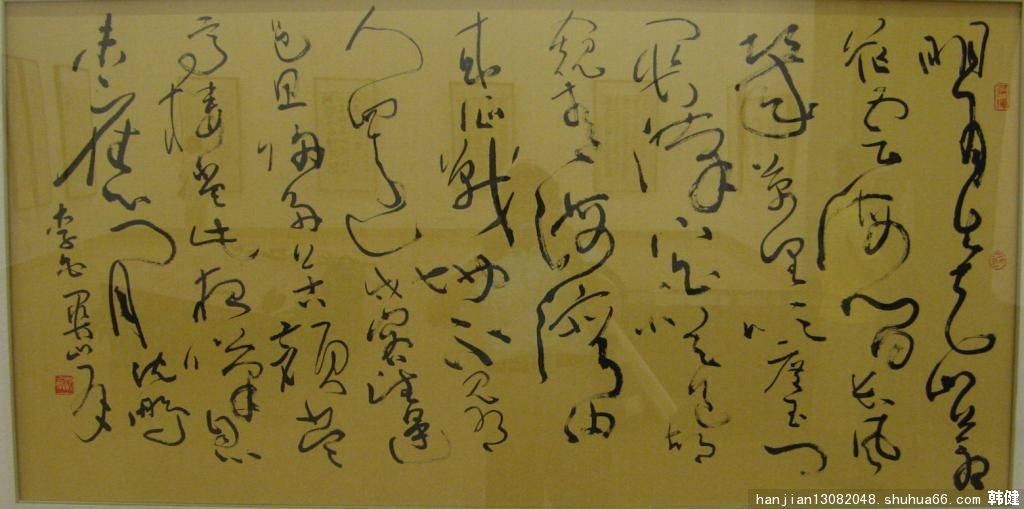 明月出天山蒼
茫雲海間長風
幾萬里吹度玉門
關漢下白登道胡
窺青海灣由
來征戰地不見有
人還戍客望邊
邑思歸多苦顏
高樓當此夜嘆息
未應閒
李白關山月
沈鵬
hanjian13082048.shuhua66.com 韩健